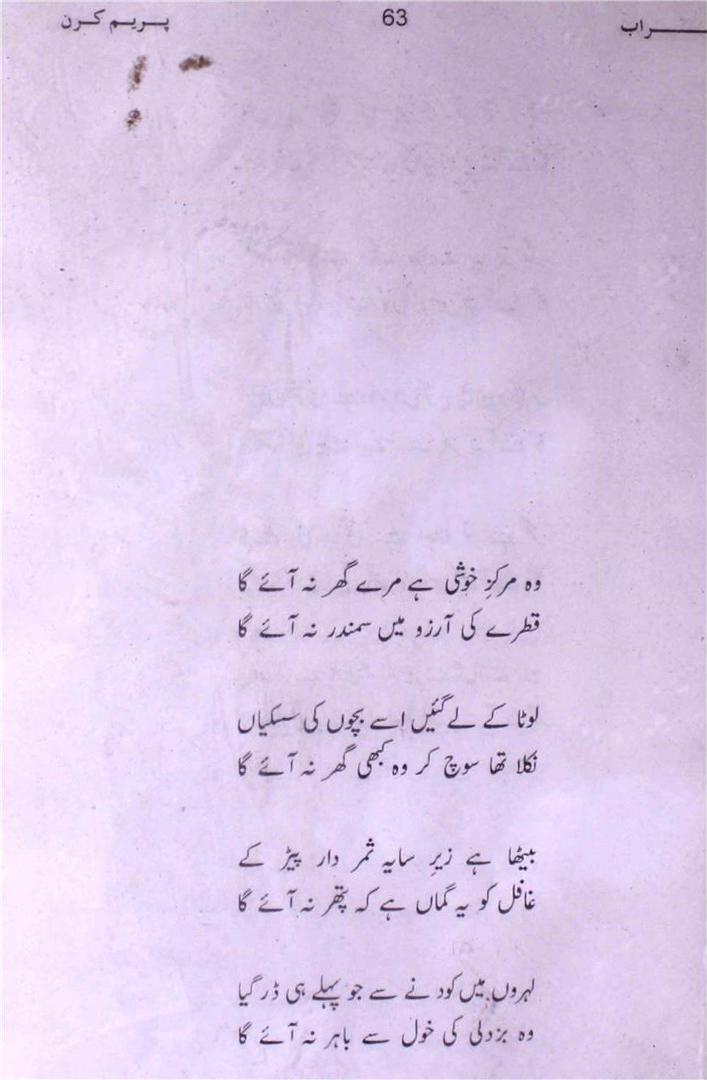 پریم کرن
63
وہ مرکزِ خوشی ہے مرے گھر نہ آئے گا
قطرے کی آرزو میں سمندر نہ آئے گا
لوٹا کے لے گئیں اسے بچوں کی سسکیاں
نکلا تھا سوچ کر وہ کبھی گھر نہ آئے گا
بیٹھا ہے زیرِ سایہ ثمر دار پیڑ کے
غافل کو یہ گماں ہے کہ پتھر نہ آئے گا
لہروں میں کودنے سے جو پہلے ہی ڈر گیا
وہ بزدلی کی خول سے باہر نہ آئے گا